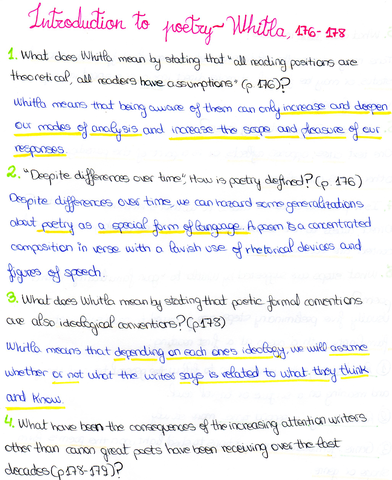 Introduction to poetry~Whitla, 176-178
1. What does Whitla mean by stating that "all reading positions are
theoretical, all readers have assumptions" (p 176)?
Whitla means that being aware of them can only increase and deepen
our modes of analysis and increase the scope and pleasure of our
responses.
2. "Despite differences over time", How is poetry defined? (p. 176)
Despite differences over time, we can hazard some generalizations
about poetry as a special form of language. A poem is a concentrated
composition in verse with a lavish use of rhetorical devices and
figures of speech.
3. What does Whitla mean by stating that poetic formal conventions
are also ideological conventions? (p178)
Whitla means that depending on each one's ideology, we will assume
whether or not what the writer says is related to what they think
and know.
4. What have been the consequences of the increasing attention writers
other than canon great poets have been receiving over the last
decades (p178-179)?